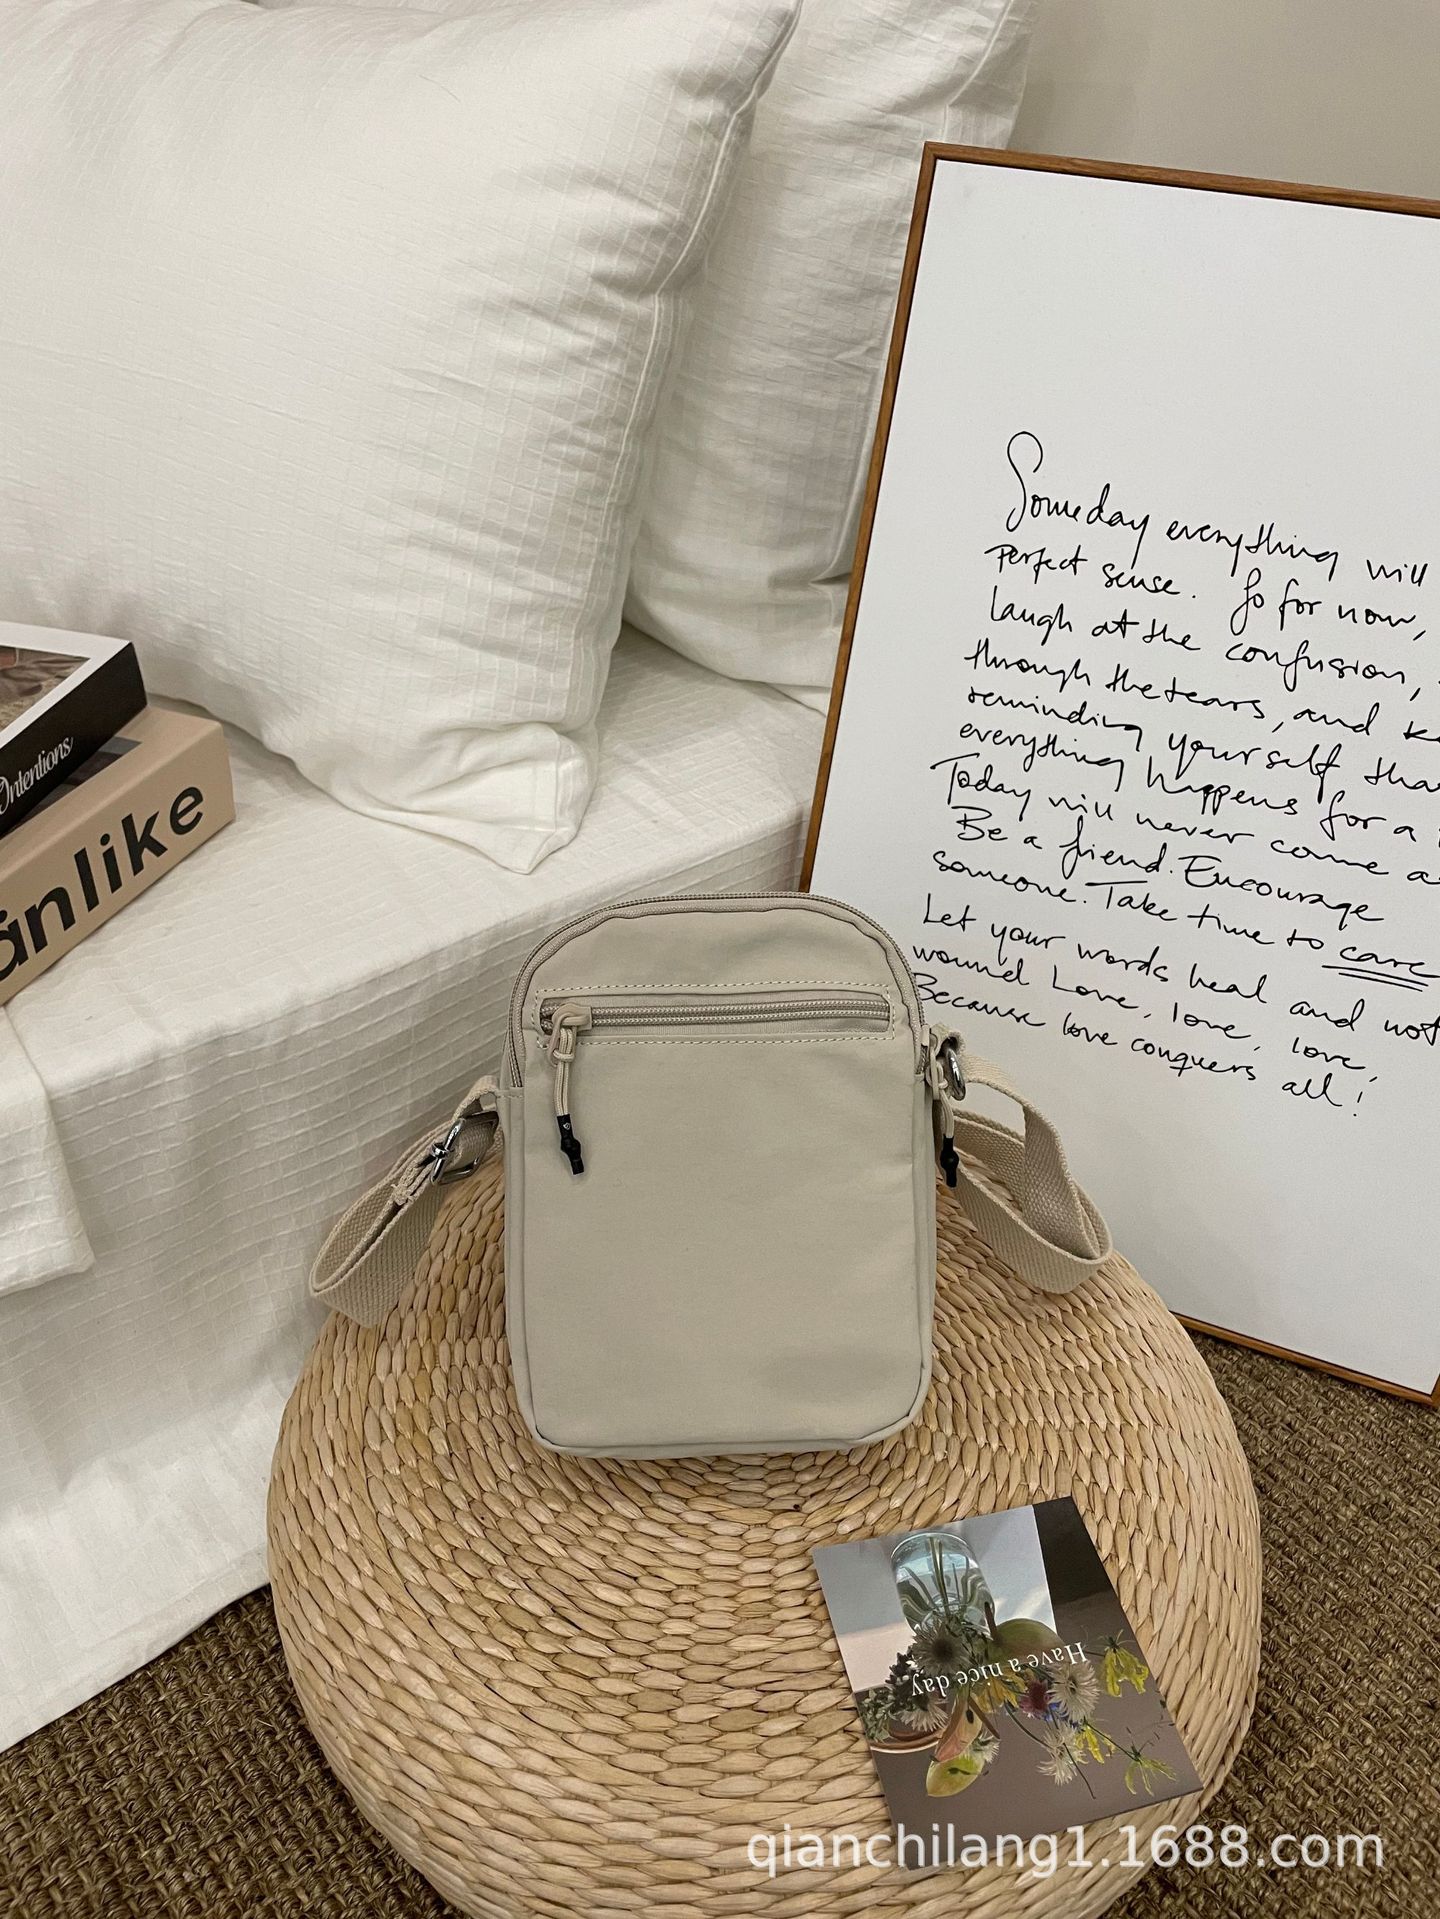 Someday everything will
Perfect sense. So for now,
laugh at the confusion,
through the tears, and
reminding yourself
everything happens for a
Today will never come
Be a friend. Encourage
someone. Take time to care
Let your words heal and not
wound Love, love, love,
Because love conquers all!
Ontentions
anlike
Have a nice day
qianchilang1.1688.com